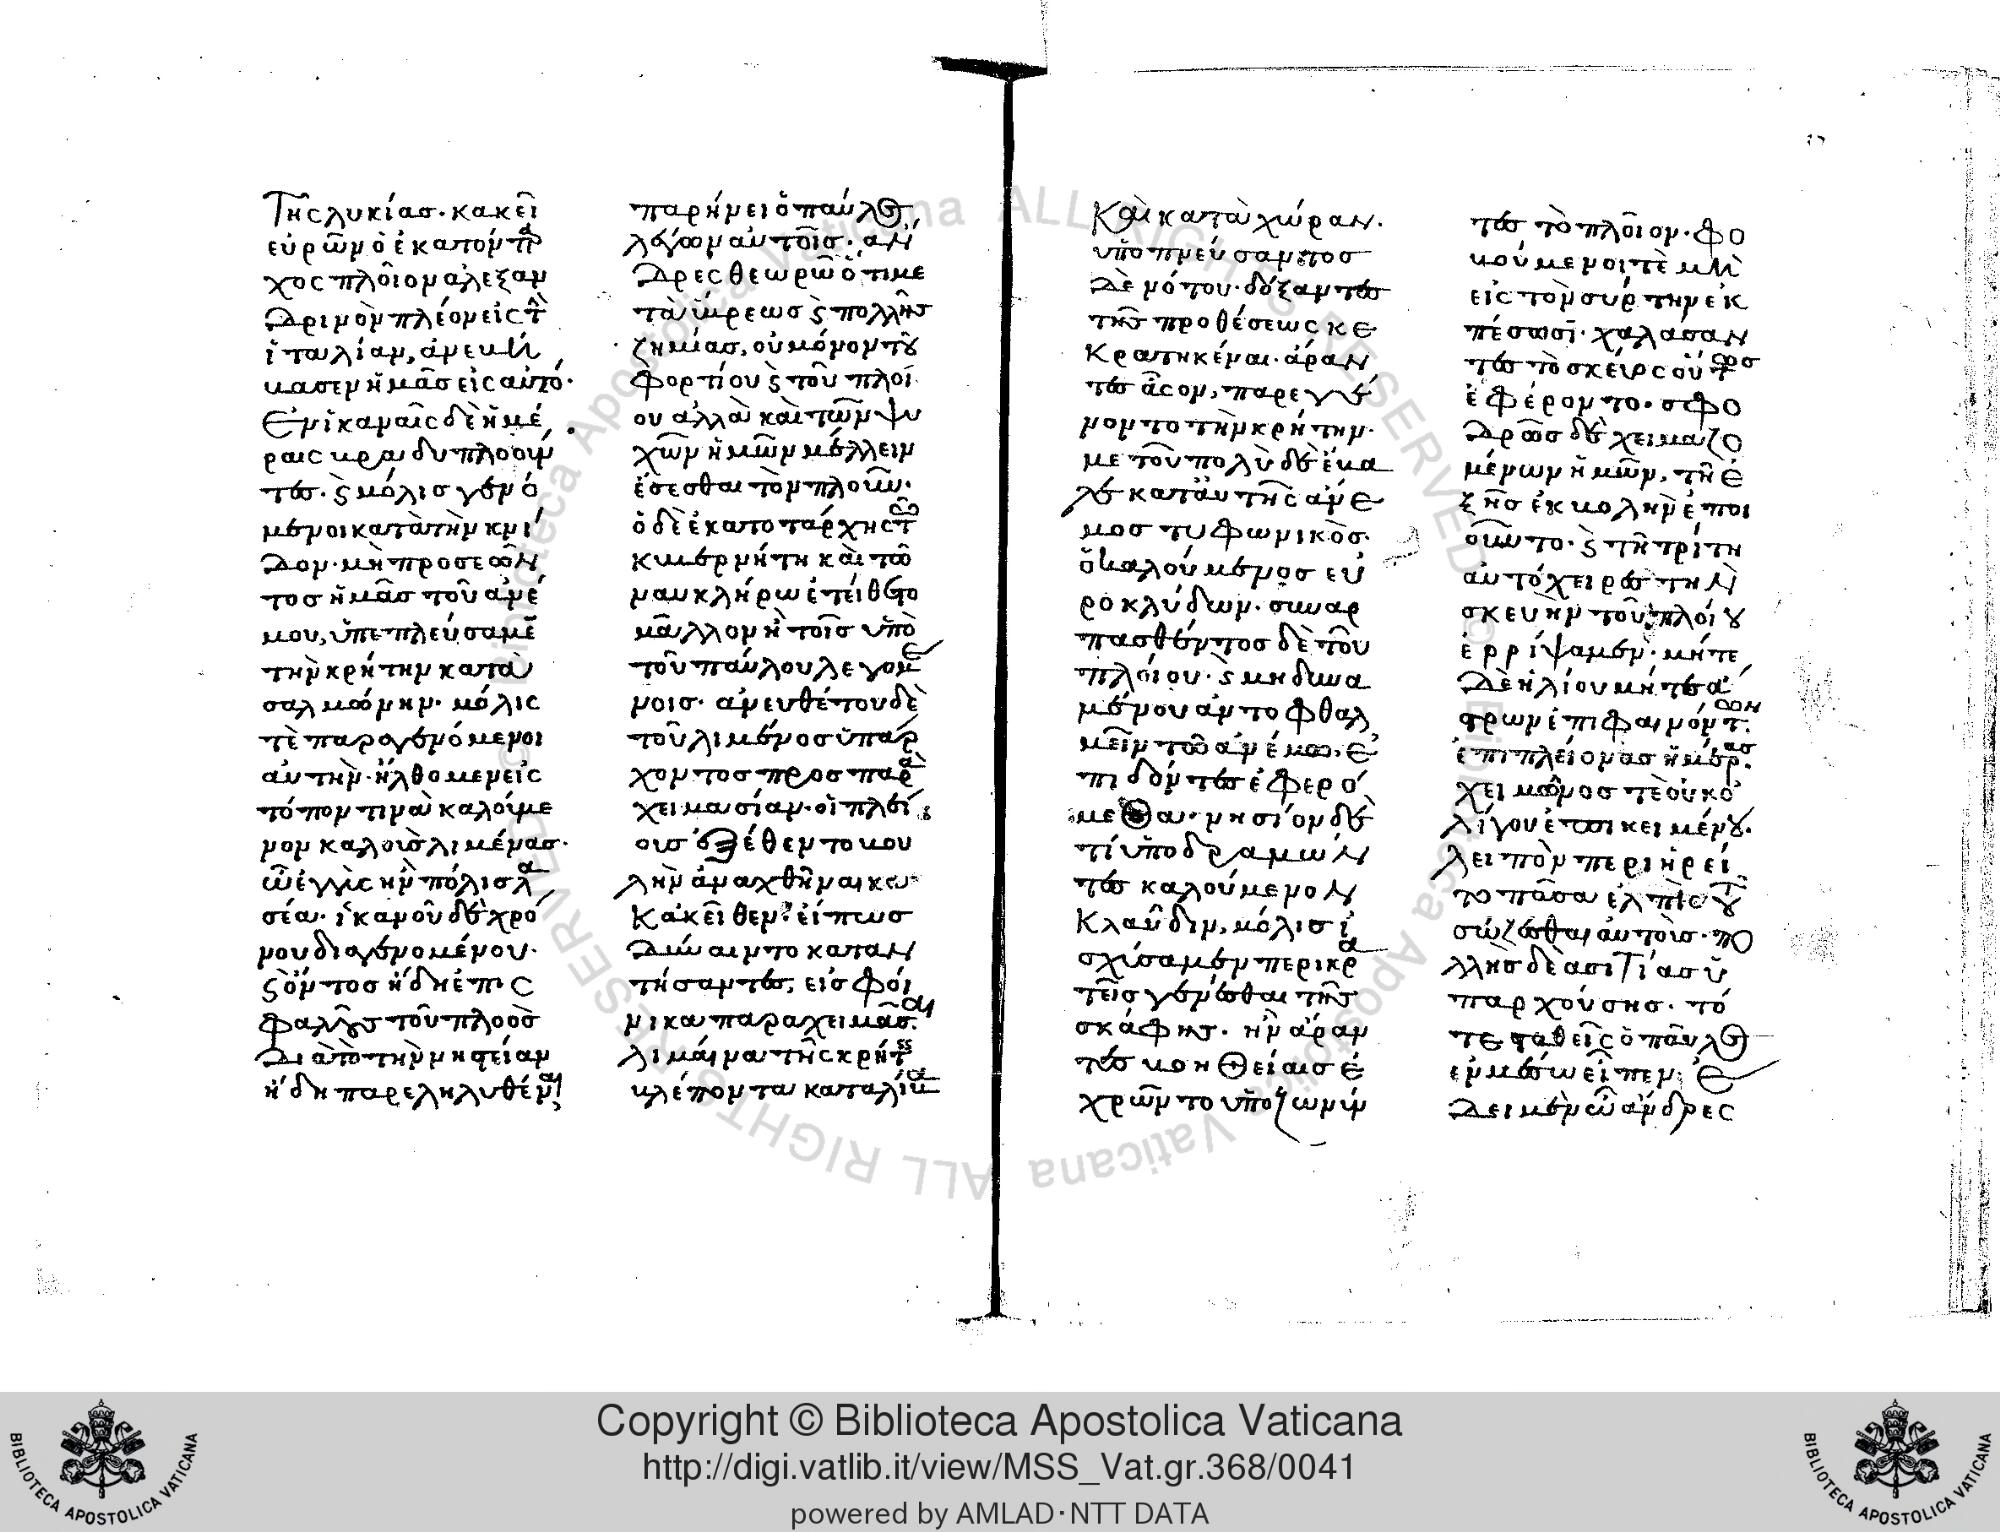 Τῆς λυκίασ· κακεῖ
εὑρῶν ὁ ἑκατοντάρ
χος πλοῖον ἀλεξαν
δρινὸν πλέον εἰς τὴ
ἰταλίαν, ἀνεβί
βασεν ἡμᾶσ εἰς αὐτό·
Ἐν ἱκαναῖς δὲ ἡμέ
ραις βραδυπλοοῦν
τεσ· ϗ μόλισ γενό
μενοι κατὰ τὴν κνί
δον· μὴ προσεῶν
τοσ ἡμᾶσ τοῦ ἀνέ
μου, ὑπεπλεύσαμε̄
τὴν κρήτην κατὰ
σαλμώνην· μόλις
τὲ παραγενόμενοι
αὐτὴν· ἤλθομεν εἰς
τόπον τινὰ καλούμε
νον καλοὺσ λιμένασ·
ὧ ἐγγὺς ἦν πόλισ λα
σέα· ἱκανοῦ δὲ χρό
νου διαγενομένου·
ϗ ὄντοσ ἤδη ἐπισ
φαλοῦσ τοῦ πλοὸσ
διὰ τὸ τὴν νηστείαν
ἤδη παρεληλυθέναι,
παρήνει ὁ παῦλοσ
λέγων αὐτοῖσ· ἄν
δρες θεωρῶ ὅτι με
τὰ ὕβρεωσ ϗ πολλῆσ
ζημίασ, οὐ μόνον τοῦ
φορτίου ϗ τοῦ πλοί
ου ἀλλὰ καὶ τῶν ψυ
χῶν ἡμῶν μέλλειν
ἔσεσθαι τὸν πλοῦν·
ὁ δὲ ἑκατοντάρχης τῶ
κυβερνήτη καὶ τῶ
ναυκλήρω ἐπείθετο
μᾶλλον ἢ τοῖσ ὑπὸ
τοῦ παύλου λεγομέ
νοισ· ἀνευθέτου δὲ
τοῦ λιμένοσ ὑπάρ
χοντοσ προσ παρα
χειμασίαν· οἱ πλεί
ουσ ἔθεντο βου
λὴν ἀναχθῆναι κα
κακεῖθεν· εἴπωσ
δύναιντο καταν
τήσαντεσ, εἰσ φοί
νικα παραχειμάσαι
λιμένα τῆς κρήτησ
βλέποντα κατὰ λίβα
Καὶ κατὰ χώραν·
ὑποπνεύσαντοσ
δὲ νότου· δόξαντεσ
τῆσ προθέσεως κε
κρατηκέναι· ἄραν
τεσ ἆσσον, παρελέγ
νοντο τὴν κρήτην·
με τοῦ πολὺ δὲ ἔβα
λε κατ' αὐτῆς ἄνε
μοσ τυφωνικὸσ·
ὁ καλούμενοσ εὐ
ροκλύδων· συναρ
πασθέντοσ δὲ τοῦ
πλοίου· ϗ μὴ δυνα
μένου ἀντοφθαλ
μεῖν τῶ ἀνέμω, ἐ
πιδόντεσ ἐφερό
μεθα· νησίον δέ
τί ὑποδραμών
τεσ καλούμενον
Κλαύδιν, μόλισ ἰ
σχύσαμεν περικρα
τεῖσ γενέσθαι τῆσ
σκάφησ· ἣν ἄραν
τεσ βοηθείαισ ἐ
χρῶντο ὑποζωννύν
τεσ τὸ πλοῖον· φο
βούμενοι τὲ μὴ
εἰς τὸν σύρτην ἐκ
πέσωσῖ· χαλάσαν
τεσ τὸ σκεῦος οὕτωσ
ἐφέροντο· σφο
δρῶσ δὲ χειμαζο
μένων ἡμῶν, τῆ ἑ
ξῆσ ἐκβολὴν ἐποι
οῦντο· ϗ τῆ τρίτη
αὐτόχειρεσ τὴν
σκευὴν τοῦ πλοίου
ἐρρίψαμεν· μήτε
δὲ ἡλίου μήτε ἄ
στρων ἐπιφαινόντων·
ἐπὶ πλείονασ ἡμέρασ·
χειμῶνοσ τὲ οὐκ ὀ
λίγου ἐπικειμένου·
λειπὸν περιηρεῖ
το πᾶσα ἐλπὶς τοῦ
σώζεσθαι αὐτοὺσ· πο
λλῆσ δὲ ἀσιτίασ ὑ
παρχούσησ· τό
τε σταθεὶς ὁ παῦλοσ
ἐν μέσω εἶπεν· Ἔ
δει μὲν ὦ ἄνδρες
Copyright © Biblioteca Apostolica Vaticana
http://digi.vatlib.it/view/MSS_Vat.gr.368/0041
powered by AMLAD·NTT DATA